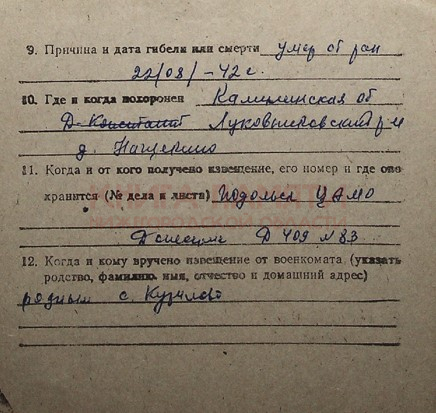 9. Причина и дата гибели или смерти умер от ран
22/08/-42 г.
10. Где и когда похоронен Калининская об
Луковниковский р-н
д.
11. Когда и от кого получено извещение, его номер и где оно
хранится (№ дела и листв) Подольск ЦАМО
Д 409 № 83
12. Когда и кому вручено извещение от военкомата, (указать
родство, фамилию, имя, отчество и домашний адрес)
родным с.